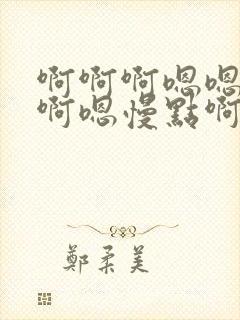 啊啊啊嗯嗯
啊嗯慢點啊
鄭柔美